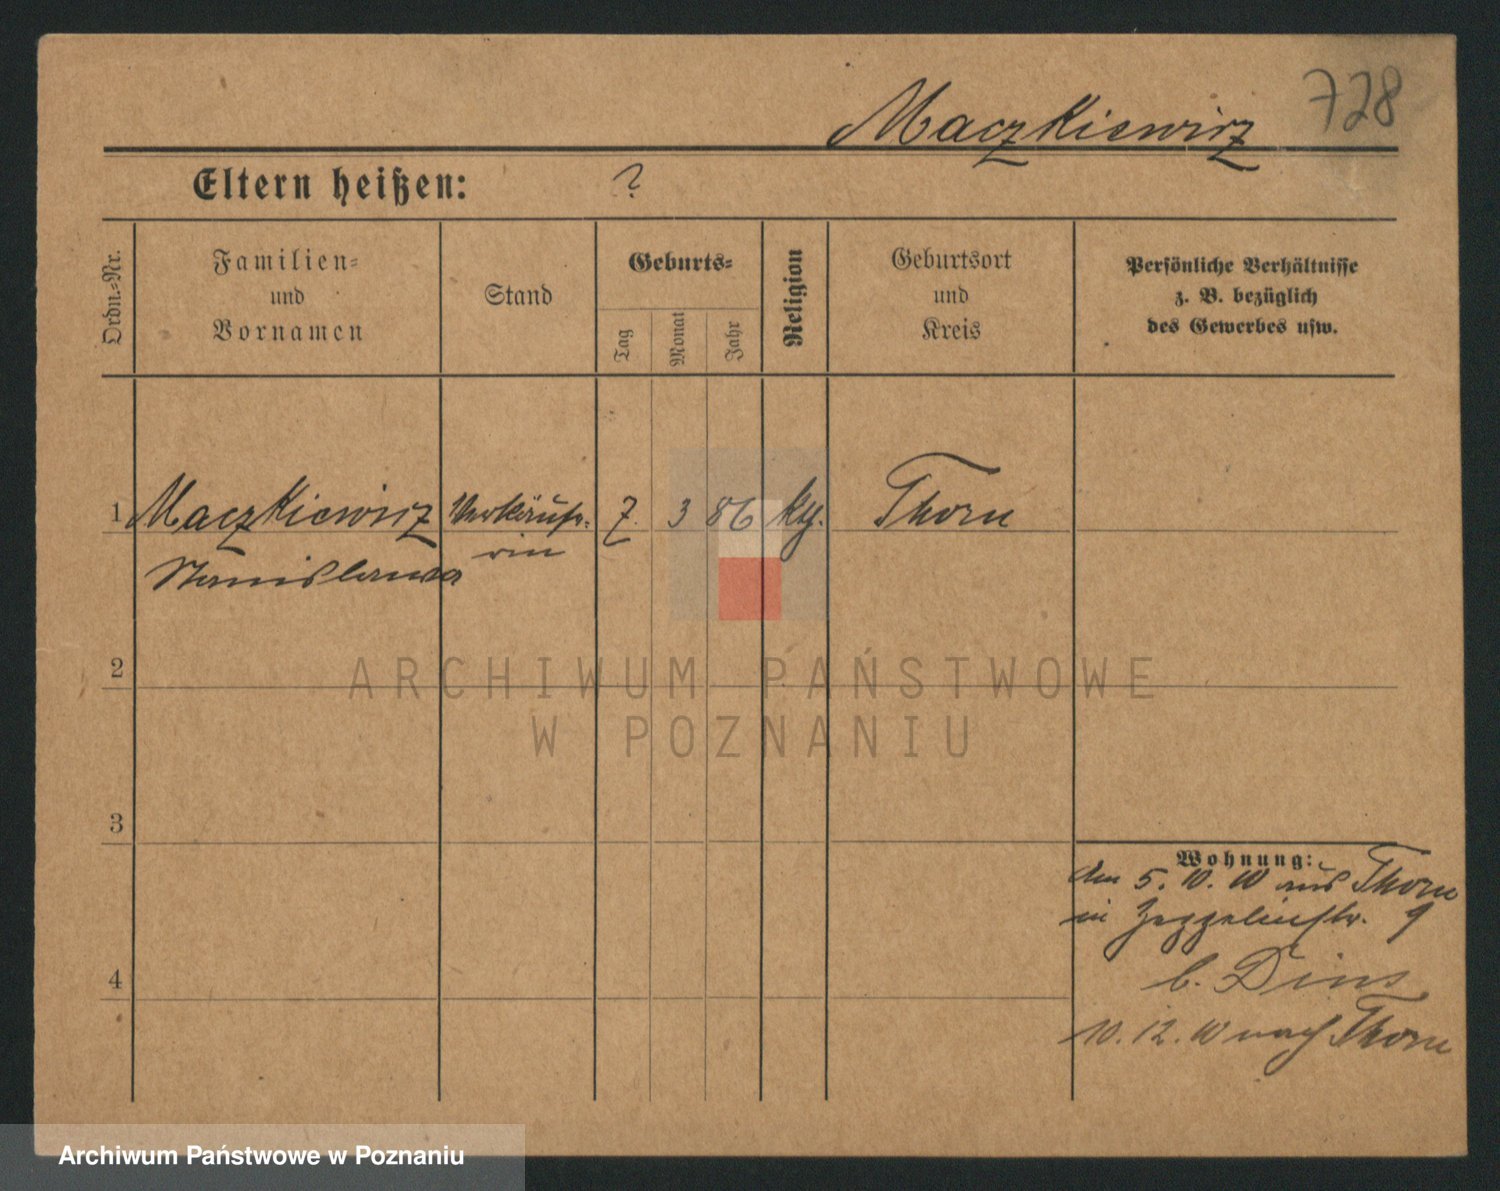 Maczkiewicz 728
Eltern heißen: ?
Ordn.-Nr.
Familien-
und
Vornamen
Stand
Geburts-
Tag
Monat
Jahr
Religion
Geburtsort
und
Kreis
Persönliche Verhältnisse
z. B. bezüglich
des Gewerbes usw.
1 Maczkiewicz Verkäufe- 7. 3 86 Thorn
Stanislawa rin
2
3
4
Wohnung:
Am 5. 10. 10 aus Thorn
in Zeppelinstr. 9
b. Dins
10. 12. 10 nach Thorn
ARCHIWUM PAŃSTWOWE
W POZNANIU
Archiwum Państwowe w Poznaniu